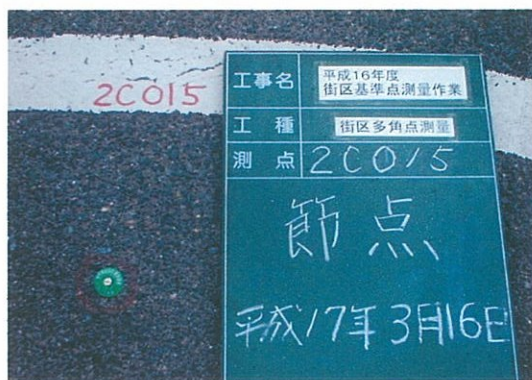 2C015
工事名
平成16年度
街区基準点測量作業
工種
街区多角点測量
測点
2C015
節点
平成17年3月16日